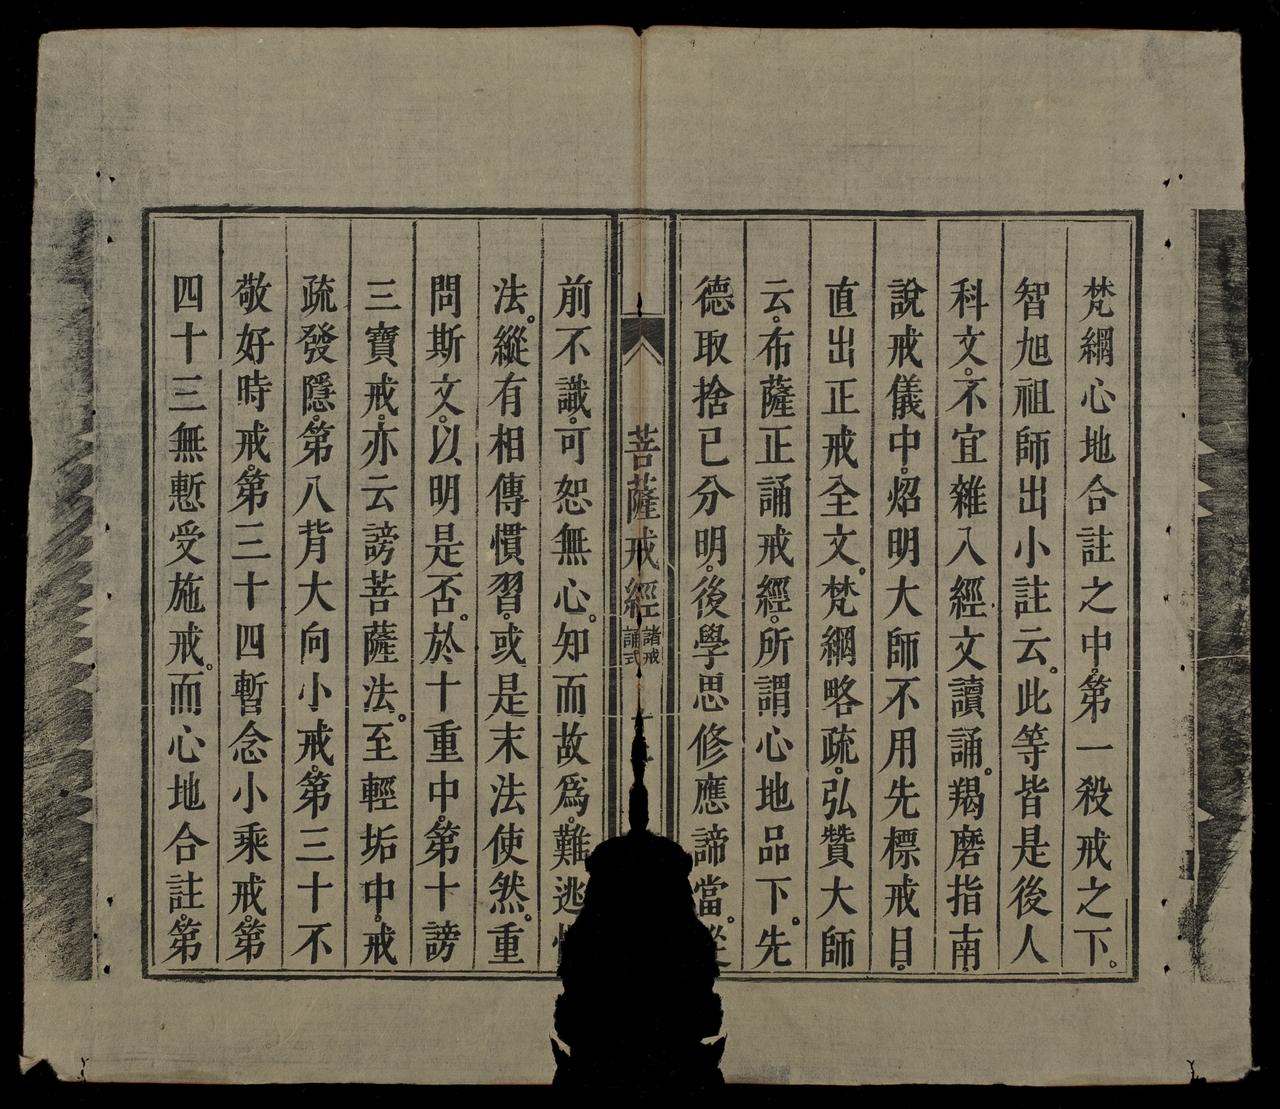 梵網心地合註之中。第一殺戒之下。
智旭祖師出小註云。此等皆是後人
科文。不宜雜入經文讀誦。羯磨指南
說戒儀中。炤明大師不用先標戒目。
直出正戒全文。梵網略疏。弘贊大師
云。布薩正誦戒經。所謂心地品下。先
德取捨已分明。後學思修應諦當。從
菩薩戒經 諸戒
誦式
前不識。可恕無心。知而故爲。難逃
法。縱有相傳慣習。或是末法使然。重
問斯文。以明是否。於十重中。第十謗
三寶戒。亦云謗菩薩法。至輕垢中。戒
疏發隱。第八背大向小戒。第三十不
敬好時戒。第三十四暫念小乘戒。第
四十三無慙受施戒。而心地合註。第